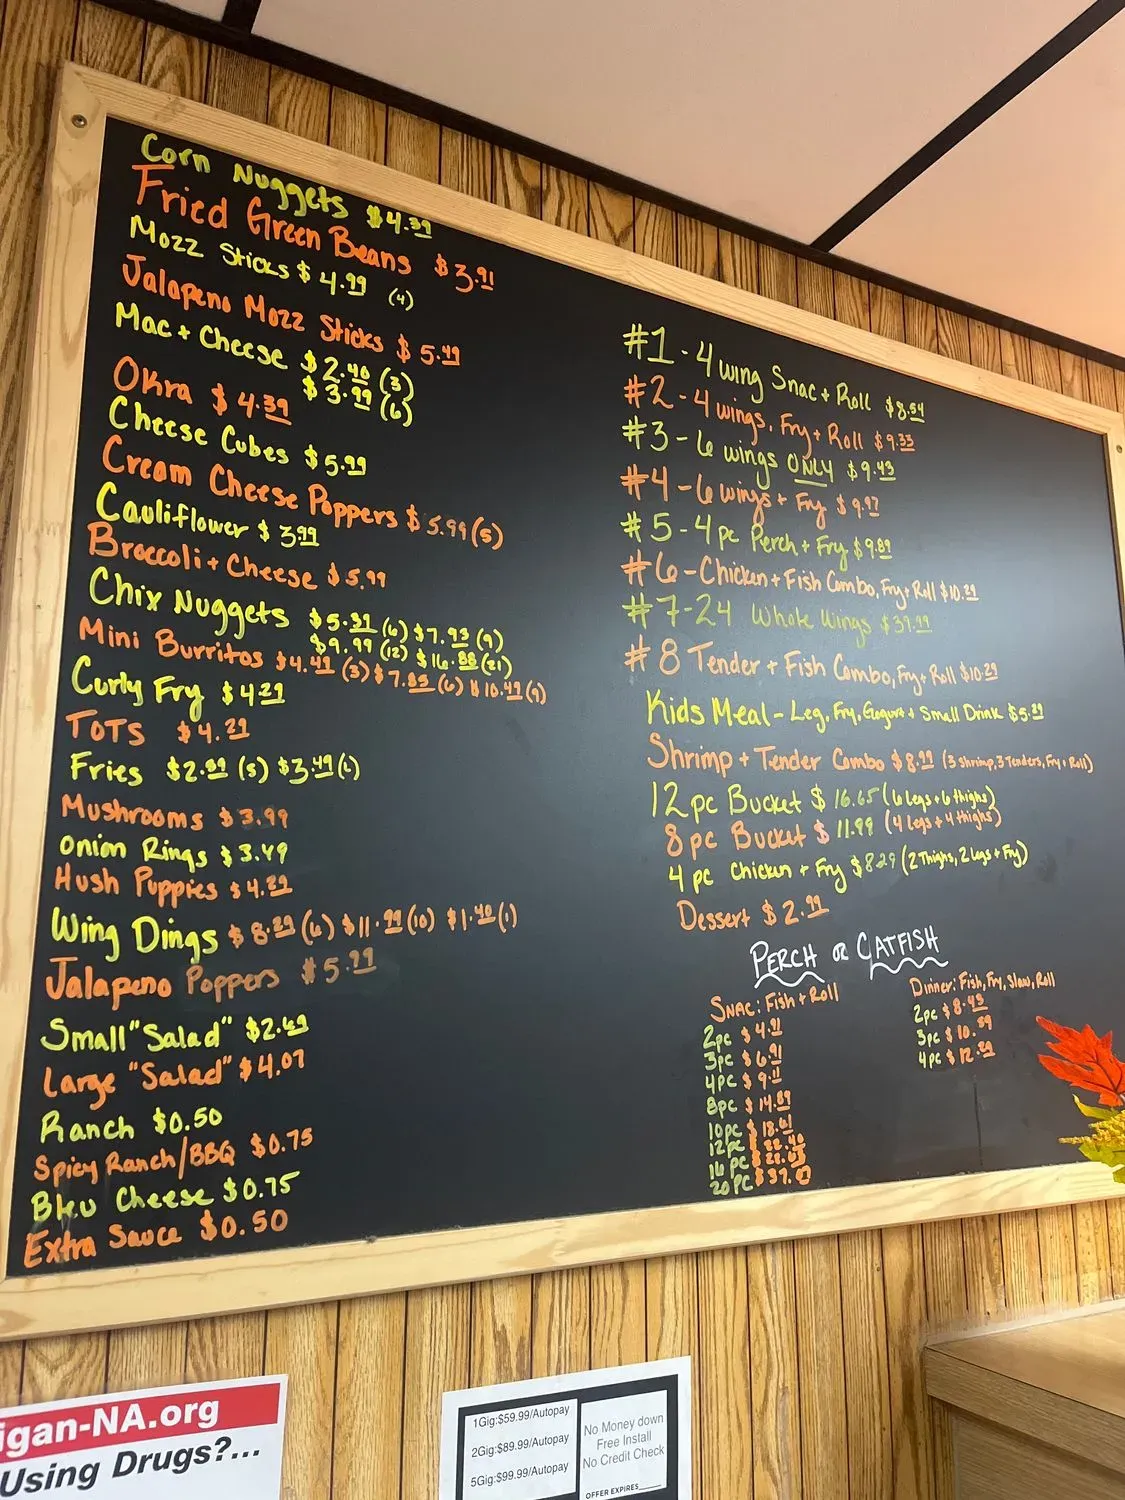 Corn Nuggets $4.39
Fried Green Beans $3.91
Mozz Sticks $4.99 (4)
Jalapeno Mozz Sticks $5.49
Mac + Cheese $2.40 (3)
$3.99 (6)
Okra $4.39
Cheese Cubes $5.99
Cream Cheese Poppers $5.99 (5)
Cauliflower $3.99
Broccoli + Cheese $5.99
Chix Nuggets $5.31 (6) $7.93 (9)
$9.99 (12) $16.88 (21)
Mini Burritos $4.49 (3) $7.85 (6) $10.49 (9)
Curly Fry $4.29
TOTS $4.29
Fries (5) $3.49 (L)
Mushrooms $3.99
Onion Rings $3.49
Hush Puppies $4.29
Wing Dings $8.29 (6) $11.99 (10) $1.40 (1)
Jalapeno Poppers $5.99
Small "Salad" $2.69
Large "Salad" $4.07
Ranch $0.50
Spicy Ranch/BBQ $0.75
Bleu Cheese $0.75
Extra Sauce $0.50
#1 - 4 wing Snac + Roll $8.54
#2 - 4 wings, Fry + Roll $9.33
#3 - 6 wings ONLY $9.43
#4 - 6 wings + Fry $9.97
#5 - 4 pc Perch + Fry $9.89
#6 - Chicken + Fish Combo, Fry + Roll $10.29
#7 - 24 Whole Wings $39.99
#8 Tender + Fish Combo, Fry + Roll $10.29
Kids Meal - Leg, Fry, Gogurt + Small Drink $5.29
Shrimp + Tender Combo $8.99 (3 shrimp, 3 Tenders, Fry + Roll)
12 pc Bucket $16.65 (6 Legs + 6 thighs)
8 pc Bucket $11.99 (4 Legs + 4 thighs)
4 pc Chicken + Fry $8.29 (2 Thighs, 2 Legs + Fry)
Dessert $2.99
PERCH or CATFISH
SNAC: Fish + Roll
2pc $4.91
3pc $6.91
4pc $9.11
8pc $14.89
10pc
12pc
16pc
20pc
Dinner: Fish, Fry, Slaw, Roll
2pc $8.45
3pc $10.59
4pc $12.29
igan-NA.org
Using Drugs?...
1Gig:$59.99/Autopay
2Gig:$89.99/Autopay
5Gig:$99.99/Autopay
No Money down
Free Install
No Credit Check
OFFER EXPIRES